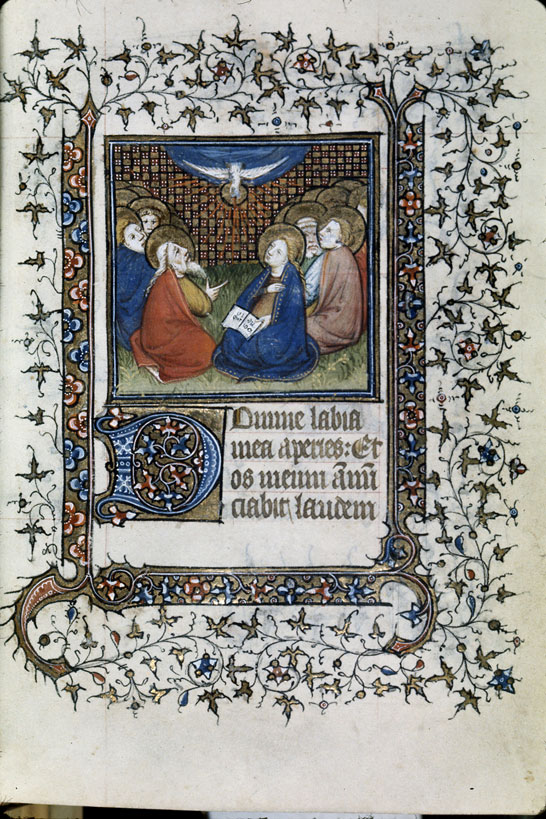 Domine labia
mea aperies: Et
os meum ānū
ciabit laudem